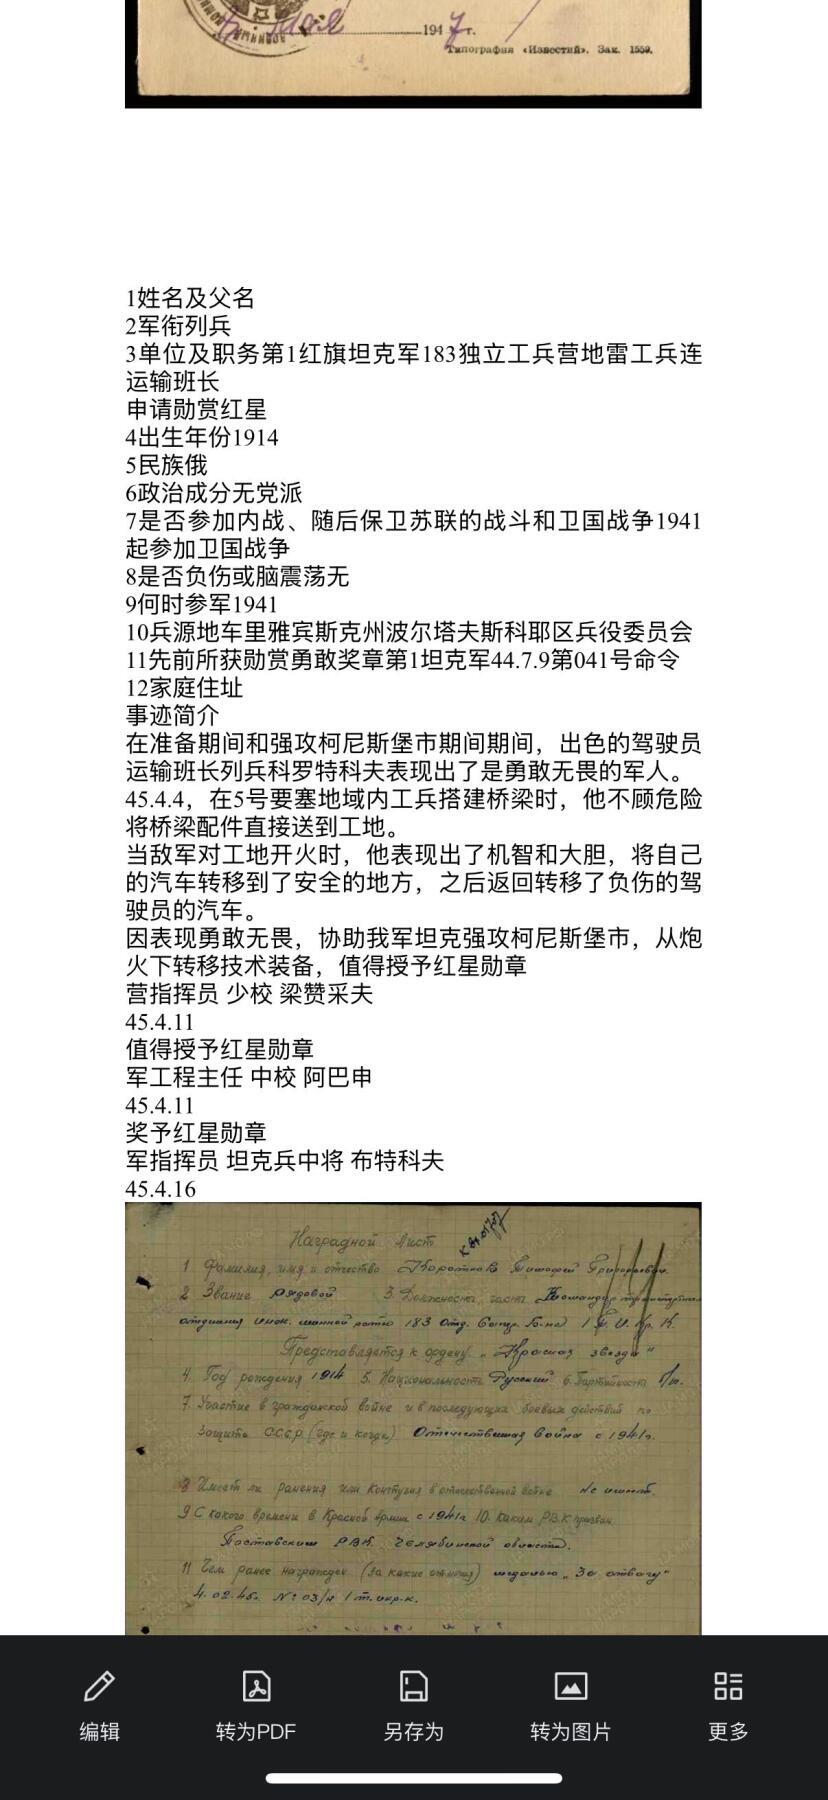 мая 1947 г.
Типография «Известий». Зак. 1559.
1姓名及父名
2军衔列兵
3单位及职务第1红旗坦克军183独立工兵营地雷工兵连
运输班长
申请勋赏红星
4出生年份1914
5民族俄
6政治成分无党派
7是否参加内战、随后保卫苏联的战斗和卫国战争1941
起参加卫国战争
8是否负伤或脑震荡无
9何时参军1941
10兵源地车里雅宾斯克州波尔塔夫斯科耶区兵役委员会
11先前所获勋赏勇敢奖章第1坦克军44.7.9第041号命令
12家庭住址
事迹简介
在准备期间和强攻柯尼斯堡市期间期间，出色的驾驶员
运输班长列兵科罗特科夫表现出了是勇敢无畏的军人。
45.4.4，在5号要塞地域内工兵搭建桥梁时，他不顾危险
将桥梁配件直接送到工地。
当敌军对工地开火时，他表现出了机智和大胆，将自己
的汽车转移到了安全的地方，之后返回转移了负伤的驾
驶员的汽车。
因表现勇敢无畏，协助我军坦克强攻柯尼斯堡市，从炮
火下转移技术装备，值得授予红星勋章
营指挥员 少校 梁赞采夫
45.4.11
值得授予红星勋章
军工程主任 中校 阿巴申
45.4.11
奖予红星勋章
军指挥员 坦克兵中将 布特科夫
45.4.16
Наградной лист
1 Фамилия, имя и отчество Коротков Тимофей Григорьевич.
2 Звание рядовой 3. Должность, часть Командир
отделения инж. минной роты 183 Отд. Сапер. Б-на 1
Представляется к ордену „Красная звезда"
4. Год рождения 1914 5. Национальность Русский 6. Партийность б/п.
7. Участие в гражданской войне и в последующих боевых действий по
защите СССР (где и когда) Отечественная война с 1941г.
8 Имеет ли ранения или контузия в отечественной войне Не имеет.
9 С какого времени в Красной армии с 1941г 10. Каким РВК призван
РВК Челябинской области.
11 Чем ранее награжден (за какие отличия) медалью „За отвагу"
4.02.45г. № 03/н 1 т.инкр.к.
编辑
转为PDF
另存为
转为图片
更多